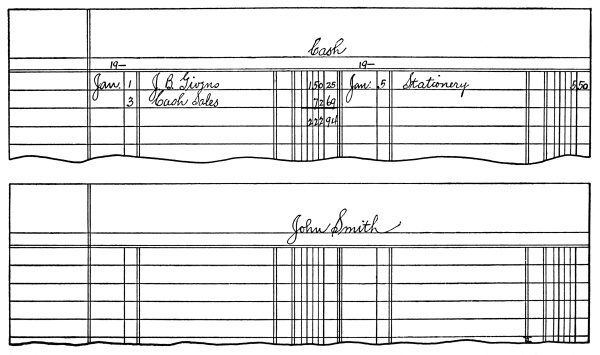 Cash
19— 19—
Jan. 1 J. B. Givens 150 25 Jan. 5 Stationery 5 50
3 Cash Sales 72 69
222 94
John Smith